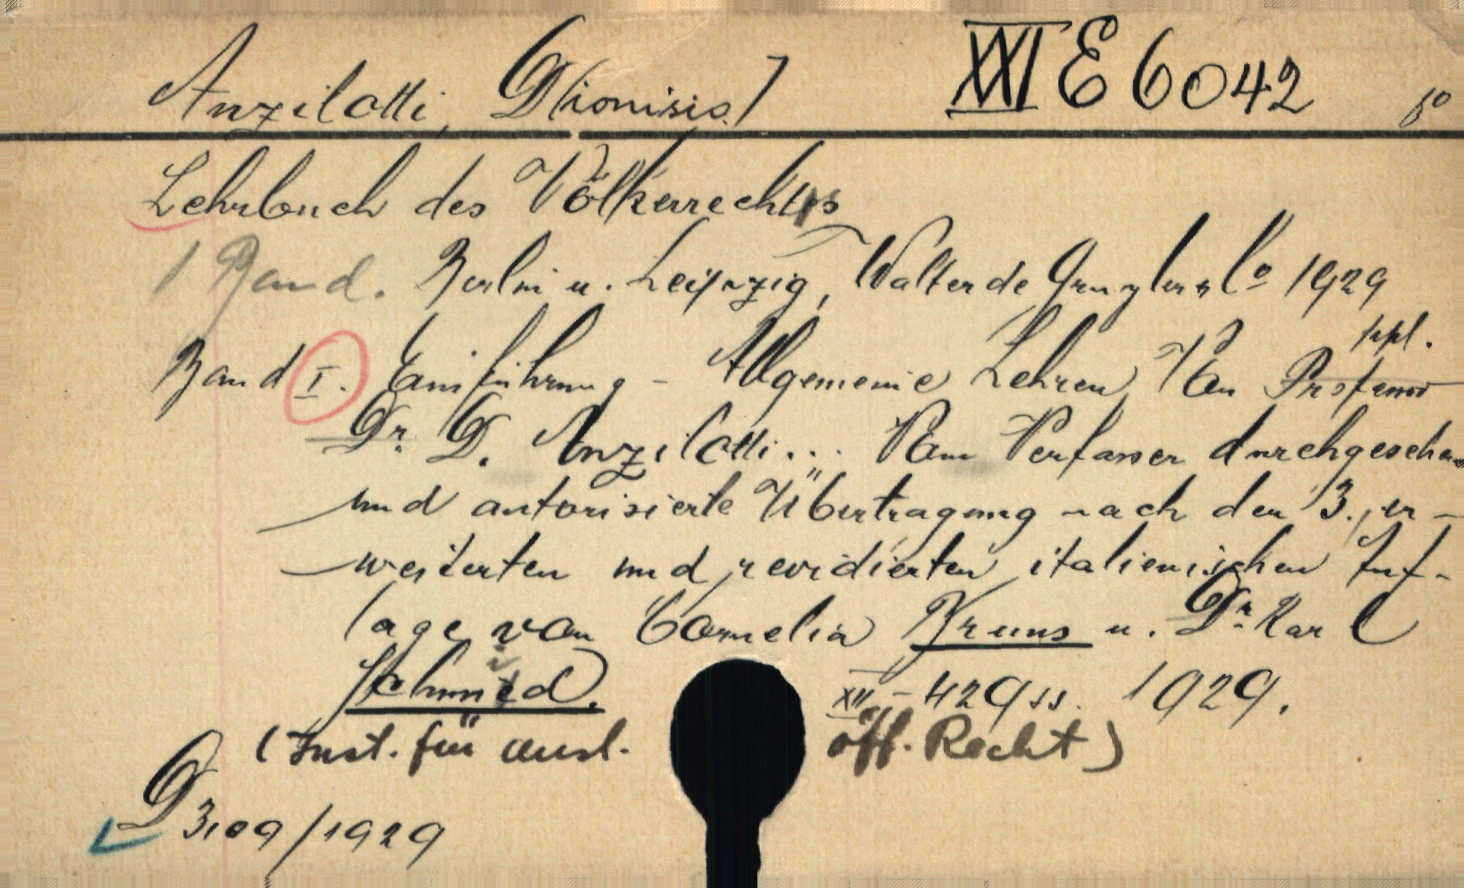 Anzilotti, D[ionisio.] XXI E 6042 8°
Lehrbuch des Völkerrechts
1 Band. Berlin u. Leipzig, Walter de Gruyter & Co 1929
kpl.
Band I. Einführung - Allgemeine Lehren Von Professor
Dr. D. Anzilotti... Vom Verfasser durchgesehene
und autorisierte Übertragung nach der 3., er-
weiterten und revidierten italienischen Auf-
lage von Cornelia Bruns u. Dr. Karl
Schmid. XII - 429 ss. 1929.
(Inst. für ausl. öff. Recht)
D 3109/1929